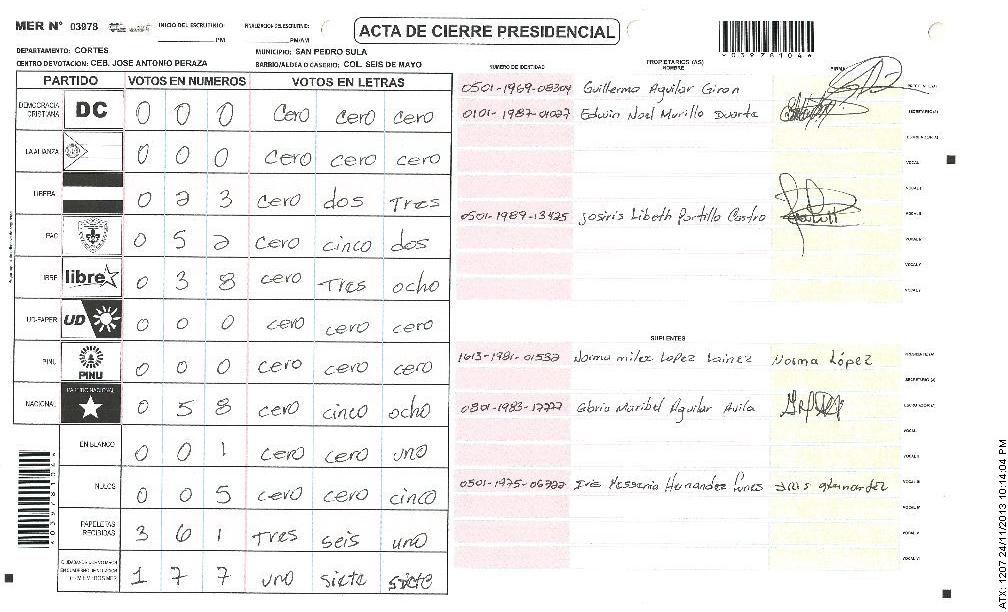 MER N° 03978 INICIO DEL ESCRUTINIO: PM FINALIZACION DEL ESCRUTINIO: PM/AM
ACTA DE CIERRE PRESIDENCIAL
*03978104*
DEPARTAMENTO: CORTES MUNICIPIO: SAN PEDRO SULA
CENTRO DE VOTACION: CEB. JOSE ANTONIO PERAZA BARRIO/ALDEA O CASERIO: COL. SEIS DE MAYO
PARTIDO VOTOS EN NUMEROS VOTOS EN LETRAS
DEMOCRACIA CRISTIANA DC 0 0 0 cero cero cero
LA ALIANZA 0 0 0 cero cero cero
LIBERAL 0 2 3 cero dos Tres
PAC 0 5 2 cero cinco dos
LIBRE libre 0 3 8 cero Tres ocho
UD-FAPER UD 0 0 0 cero cero cero
PINU PINU 0 0 0 cero cero cero
NACIONAL PARTIDO NACIONAL 0 5 8 cero cinco ocho
EN BLANCO 0 0 1 cero cero uno
NULOS 0 0 5 cero cero cinco
PAPELETAS RECIBIDAS 3 6 1 Tres seis uno
1 7 7 uno siete siete
*03978104*
NUMERO DE IDENTIDAD PROPIETARIOS (AS) NOMBRE FIRMA
0501-1969-08304 Guillermo Aguilar Giron
0101-1987-01027 Edwin Noel Murillo Duarte SECRETARIO(A)
ESCRUTADOR(A)
VOCAL I
VOCAL II
0501-1989-13425 Josiris Libeth Portillo Castro VOCAL III
VOCAL IV
VOCAL V
SUPLENTES
1613-1981-01532 Norma milez Lopez Lainez Norma López PRESIDENTE(A)
SECRETARIO (A)
0801-1983-17727 Gloria Maribel Aguilar Avila ESCRUTADOR(A)
VOCAL I
VOCAL II
0501-1975-06722 Iris Yessenia Hernandez Funes Iris Hernandez VOCAL III
VOCAL IV
VOCAL V
ATX: 1207 24/11/2013 10:14:04 PM